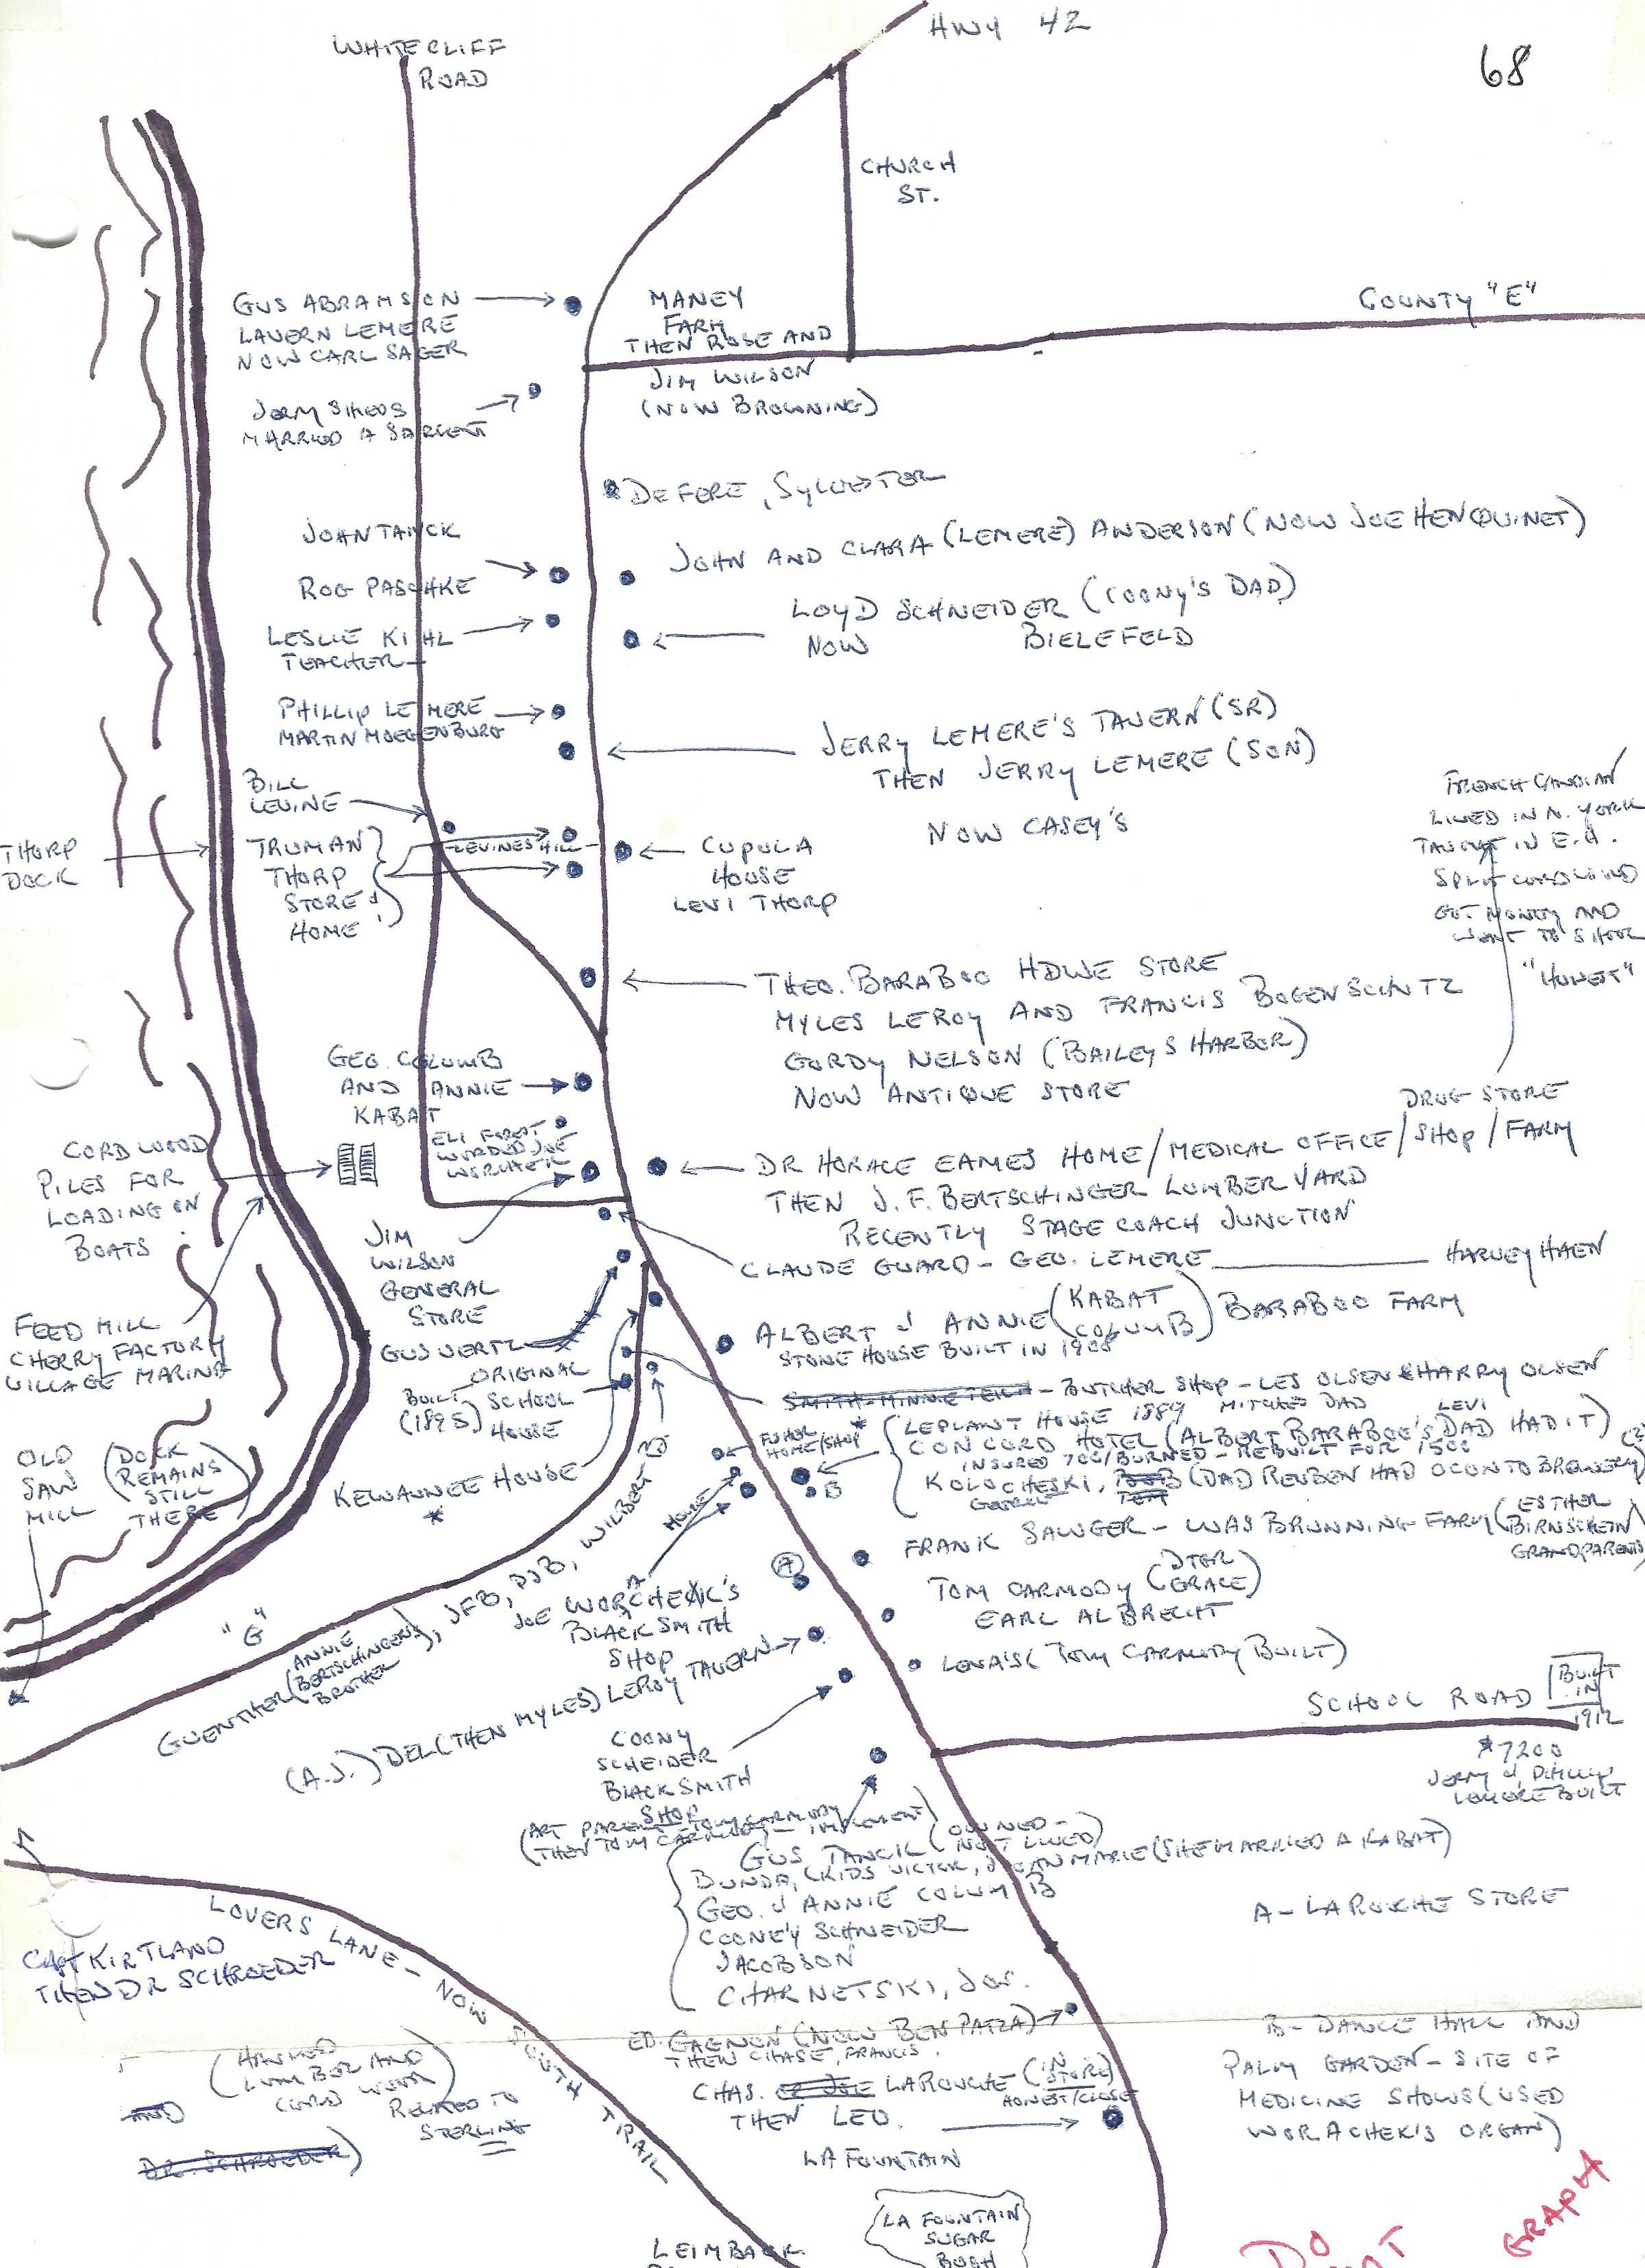 HWY 42
68
WHITECLIFF
ROAD
CHURCH
ST.
COUNTY "E"
GUS ABRAMSON
LAVERN LEMERE
NOW CARL SAGER
MANEY
FARM
THEN ROSE AND
JIM WILSON
(NOW BROWNING)
MARRIED A SARGENT
DEFERE, SYLVESTOR
JOHN TANCK
ROG PASCHKE
JOHN AND CLARA (LEMERE) ANDERSON (NOW JOE HENQUINET)
LOYD SCHNEIDER (COONY'S DAD)
NOW BIELEFELD
LESLIE KIHL
TEACHER
PHILLIP LEMERE
MARTIN MOEGENBURG
JERRY LEMERE'S TAVERN (SR)
THEN JERRY LEMERE (SON)
NOW CASEY'S
BILL
LEVINE
LEVINES HILL
THORP
DOCK
TRUMAN
THORP
STORE &
HOME
CUPOLA
HOUSE
LEVI THORP
FRENCH CANDIAN
LIVED IN N. YORK
TAUGHT IN E.H.
SPLIT CORDWOOD
GOT MONEY AND
WENT TO SCHOOL
"HONEST"
THEO. BARABOO HDWE STORE
MYLES LEROY AND FRANCIS BOGENSCHUTZ
GORDY NELSON (BAILEYS HARBOR)
NOW ANTIQUE STORE
GEO. COLUMB
AND ANNIE
KABAT
CORDWOOD
PILES FOR
LOADING ON
BOATS
DRUG STORE
DR HORACE EAMES HOME/MEDICAL OFFICE/SHOP/FARM
THEN J.F. BERTSCHINGER LUMBER YARD
RECENTLY STAGE COACH JUNCTION
JIM
WILSON
GENERAL
STORE
CLAUDE GUARD - GEO. LEMERE HARVEY HAEN
FEED MILL
CHERRY FACTORY
VILLAGE MARINA
GUS VERTZ
ALBERT & ANNIE (KABAT
COLUMB) BARABOO FARM
STONE HOUSE BUILT IN 1908
ORIGINAL
SCHOOL
HOUSE
BUILT
(1895)
- BUTCHER SHOP - LES OLSEN & HARRY OLSEN
MITCHES DAD
LEPLANT HOUSE 1889
LEVI
CONCORD HOTEL (ALBERT BARABOO'S DAD HAD IT)
INSURED 700/BURNED - REBUILT FOR 1500
KOLOCHESKI, BOB (DAD REUBEN HAD OCONTO BREWERY)
HOME/SHOP
B
HOUSE
OLD
SAW
MILL
(DOCK
REMAINS
STILL
THERE)
KEWAUNEE HOUSE
*
FRANK SAWGER - WAS BRUNNING FARM (ESTHER
BIRNSCHEIN
GRANDPARENTS)
A
TOM CARMODY (DTER
GRACE)
EARL ALBRECHT
JOE WORACHEK'S
BLACKSMITH
SHOP
"G"
GUENTHER (ANNIE
BERTSCHINGERS
BROTHER), JFB, DJB, WILBERT B
LENA'S (TOM CARMODY BUILT)
(A.J.) DEL (THEN MYLES) LEROY TAVERN
SCHOOL ROAD
BUILT
IN
1912
$7200
JERRY & PHILLIP
LEMERE BUILT
COONY
SCHEIDER
BLACKSMITH
SHOP
(ART PARENT - TOM CARMODY
THEN TOM CARMODY - IMPLEMENT)
GUS TANCK (OWNED -
NOT LIVED)
BUNDA, (KIDS VICTOR, JEAN MARIE (SHE MARRIED A KABAT)
GEO. & ANNIE COLUMB
COONEY SCHNEIDER
JACOBSON
CHARNETSKI, JOS.
A - LAROUCHE STORE
LOVERS LANE - NOW SOUTH TRAIL
CAPT KIRTLAND
THEN DR SCHROEDER
(HAULED
LUMBER AND
CORD WOOD)
AND
RELATED TO
STERLING
DR. SCHROEDER)
ED. GAGNON (NOW BEN PATZA)
THEN CHASE, FRANCIS.
CHAS. OR JOE LAROUCHE (IN
STORE)
HONEST/CLOSE
THEN LEO.
LA FOUNTAIN
B - DANCE HALL AND
PALM GARDEN - SITE OF
MEDICINE SHOWS (USED
WORACHEK'S ORGAN)
LA FOUNTAIN
SUGAR
BUSH
LEIMBACK
DO
GRAPH